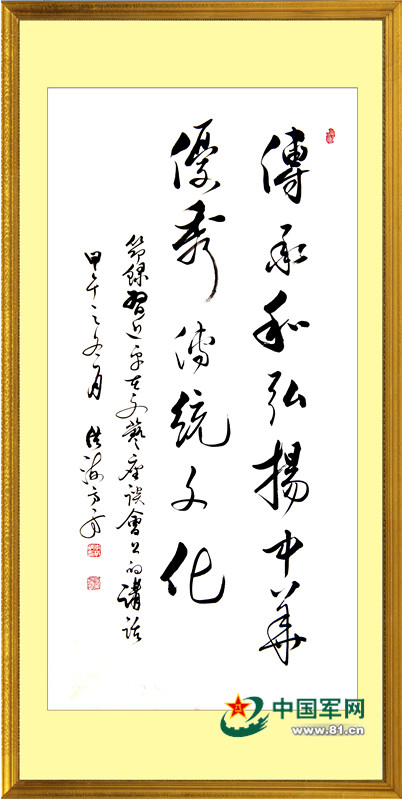 傳承和弘揚中華
優秀传統文化
節錄習近平在文藝座談會上的講話
甲午之冬月
中国军网
www.81.cn